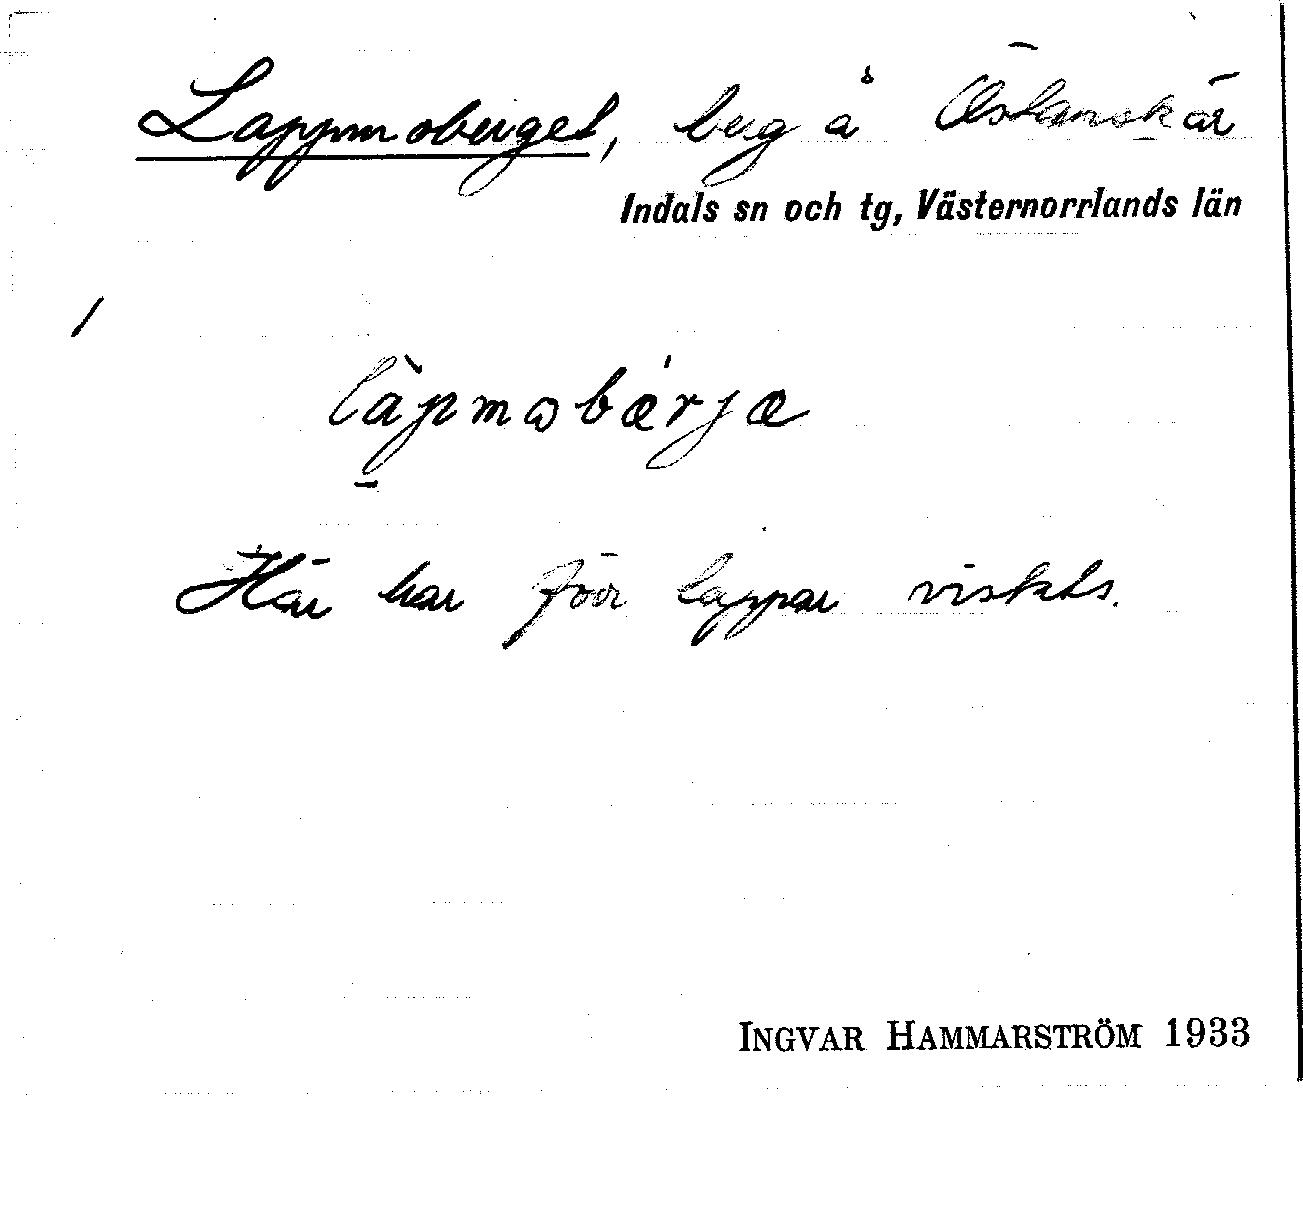 Lappmoberget, berg å Östanskär
Indals sn och tg, Västernorrlands län
/
làpmɷbǽrjæ
Här har förr lappar vistats.
INGVAR HAMMARSTRÖM 1933